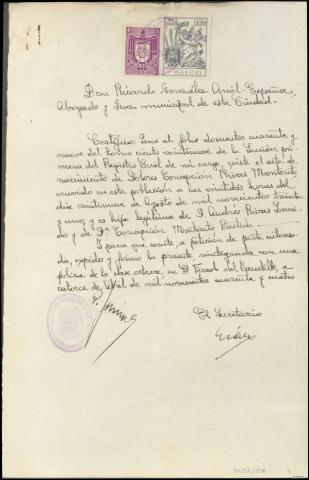 Don Ricardo González Amil Español,
Abogado y Juez municipal de esta Ciudad.
Certifico: Que al folio doscientos cuarenta y
nueve del tomo ciento veintinueve de la Sección pri-
mera del Registro Civil de mi cargo, existe el acta de
nacimiento de Dolores Concepción Rivas Montouto
ocurrido en esta población a las veintidós horas del
día veintinueve de Agosto de mil novecientos treinta
y uno, y es hija legítima de D. Andrés Rivas
y de Dª Concepción Montouto
Y para que conste, a petición de parte interesa-
da, expido y firmo la presente, reintegrada con una
póliza de la clase octava en El Ferrol del Caudillo, a
catorce de Abril de mil novecientos cuarenta y cuatro
El Secretario